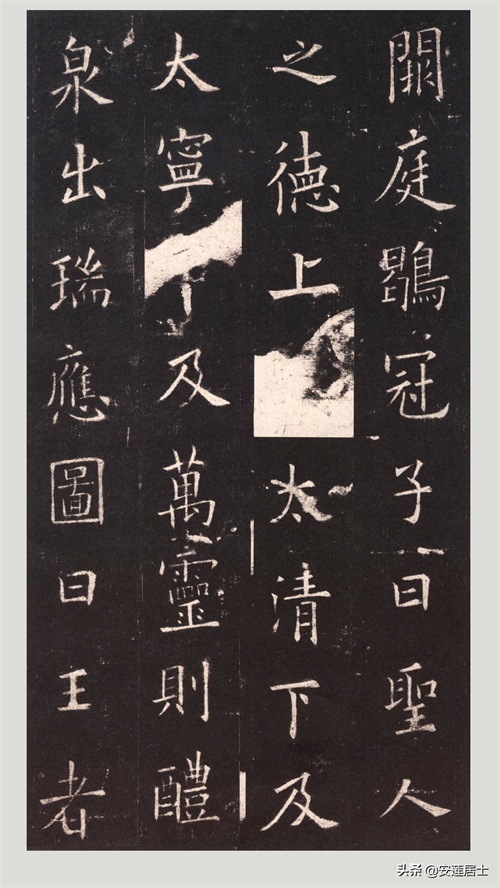 闕庭鶡冠子曰聖人
之德上太清下及
太寧及萬靈則醴
泉出瑞應圖曰王者
头条 @安莲居士